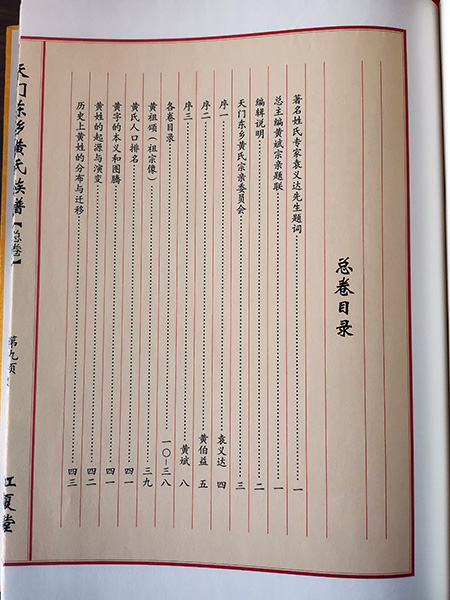 总卷目录
著名姓氏专家袁义达先生题词……一
总主编黄斌宗亲题联……一
编辑说明……二
天门东乡黄氏宗亲委员会……三
序一……袁义达 四
序二……黄伯益 五
序三……黄斌 八
各卷目录……一〇—三八
黄祖颂（祖宗像）……三九
黄氏人口排名……四一
黄字的本义和图腾……四一
黄姓的起源与演变……四二
历史上黄姓的分布与迁移……四三
天门东乡黄氏族谱【总卷】
第九页
江夏堂